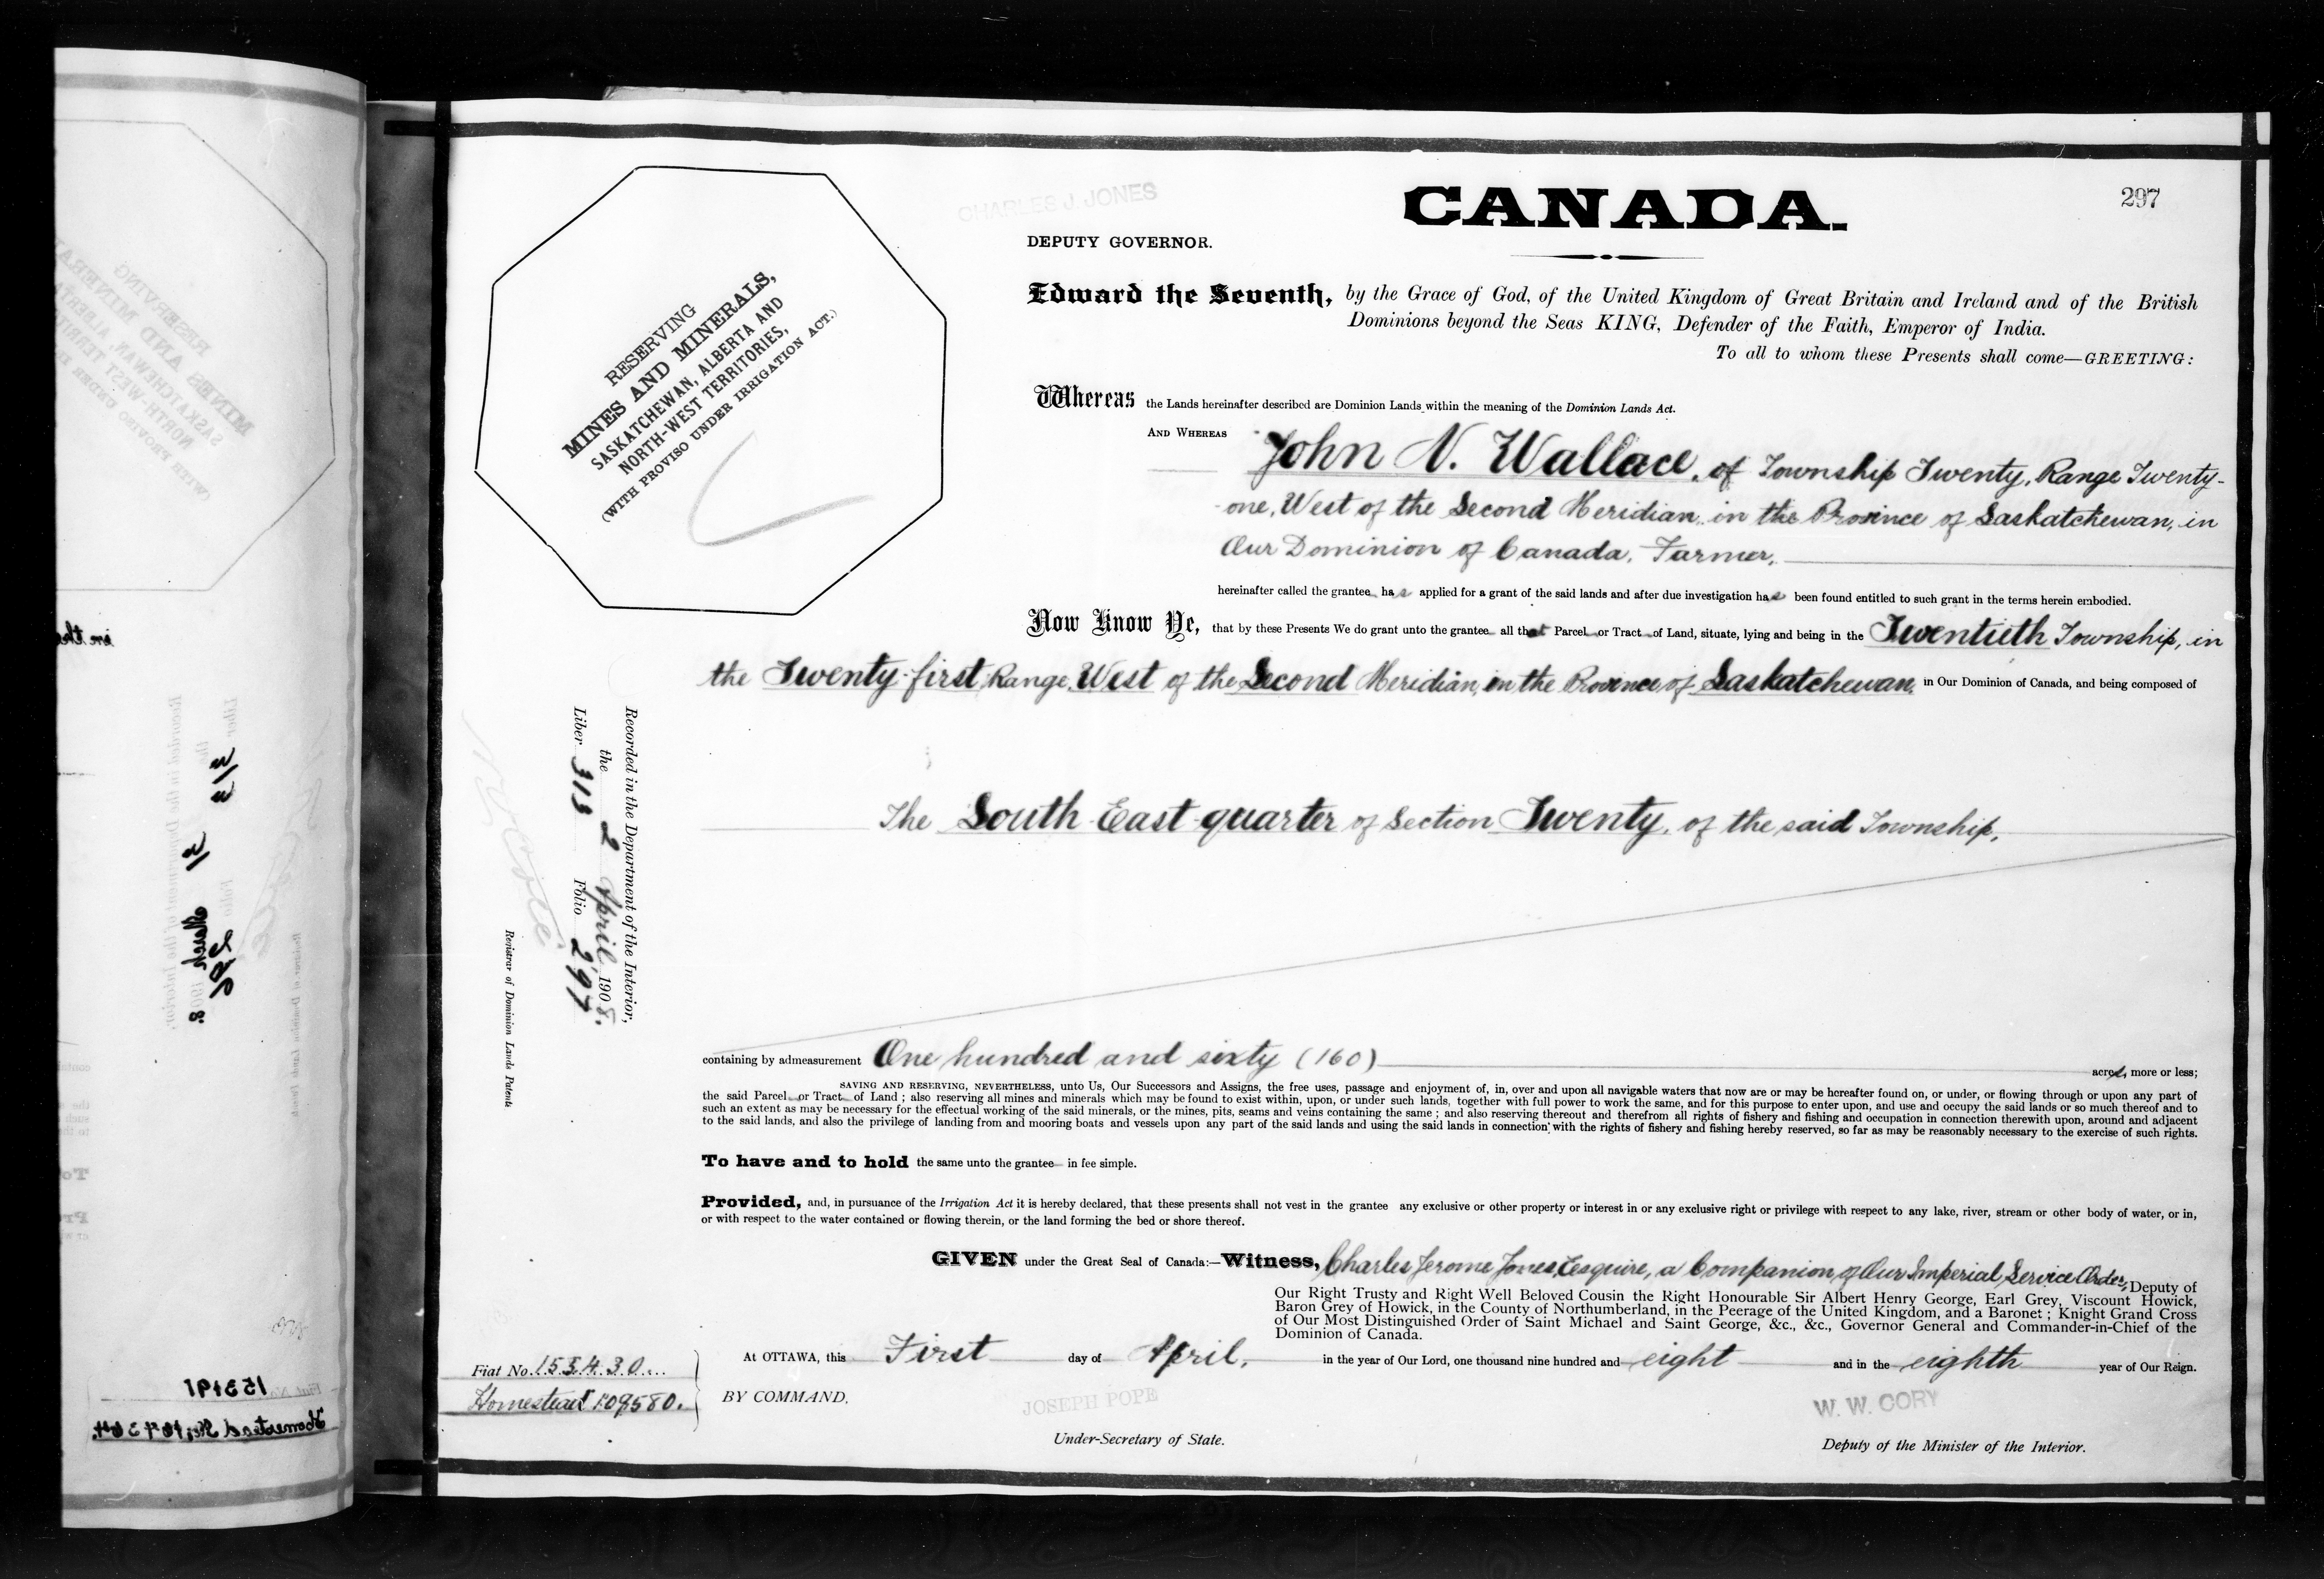 CHARLES J. JONES
CANADA.
297
DEPUTY GOVERNOR.
Edward the Seventh, by the Grace of God, of the United Kingdom of Great Britain and Ireland and of the British
Dominions beyond the Seas KING, Defender of the Faith, Emperor of India.
To all to whom these Presents shall come—GREETING:
RESERVING
MINES AND MINERALS,
SASKATCHEWAN, ALBERTA AND
NORTH-WEST TERRITORIES,
(WITH PROVISO UNDER IRRIGATION ACT.)
Whereas the Lands hereinafter described are Dominion Lands within the meaning of the Dominion Lands Act.
AND WHEREAS John N. Wallace, of Township Twenty, Range Twenty-
one, West of the Second Meridian, in the Province of Saskatchewan, in
Our Dominion of Canada, Farmer,
hereinafter called the grantee has applied for a grant of the said lands and after due investigation has been found entitled to such grant in the terms herein embodied.
Now Know Ye, that by these Presents We do grant unto the grantee all that Parcel or Tract of Land, situate, lying and being in the Twentieth Township, in
the Twenty-first Range, West of the Second Meridian, in the Province of Saskatchewan, in Our Dominion of Canada, and being composed of
The South East quarter of Section Twenty, of the said Township,
Recorded in the Department of the Interior,
the 2 April 1908.
Liber 313 Folio 297
Registrar of Dominion Lands Patents
containing by admeasurement One hundred and sixty (160) acres, more or less;
SAVING AND RESERVING, NEVERTHELESS, unto Us, Our Successors and Assigns, the free uses, passage and enjoyment of, in, over and upon all navigable waters that now are or may be hereafter found on, or under, or flowing through or upon any part of
the said Parcel or Tract of Land ; also reserving all mines and minerals which may be found to exist within, upon, or under such lands, together with full power to work the same, and for this purpose to enter upon, and use and occupy the said lands or so much thereof and to
such an extent as may be necessary for the effectual working of the said minerals, or the mines, pits, seams and veins containing the same ; and also reserving thereout and therefrom all rights of fishery and fishing and occupation in connection therewith upon, around and adjacent
to the said lands, and also the privilege of landing from and mooring boats and vessels upon any part of the said lands and using the said lands in connection with the rights of fishery and fishing hereby reserved, so far as may be reasonably necessary to the exercise of such rights.
To have and to hold the same unto the grantee in fee simple.
Provided, and, in pursuance of the Irrigation Act it is hereby declared, that these presents shall not vest in the grantee any exclusive or other property or interest in or any exclusive right or privilege with respect to any lake, river, stream or other body of water, or in,
or with respect to the water contained or flowing therein, or the land forming the bed or shore thereof.
GIVEN under the Great Seal of Canada:—Witness, Charles Jerome Jones, Esquire, a Companion of Our Imperial Service Order, Deputy of
Our Right Trusty and Right Well Beloved Cousin the Right Honourable Sir Albert Henry George, Earl Grey, Viscount Howick,
Baron Grey of Howick, in the County of Northumberland, in the Peerage of the United Kingdom, and a Baronet ; Knight Grand Cross
of Our Most Distinguished Order of Saint Michael and Saint George, &c., &c., Governor General and Commander-in-Chief of the
Dominion of Canada.
At OTTAWA, this First day of April, in the year of Our Lord, one thousand nine hundred and eight and in the eighth year of Our Reign.
Fiat No. 153430
Homestead 109580.
BY COMMAND.
JOSEPH POPE
Under-Secretary of State.
W. W. CORY
Deputy of the Minister of the Interior.